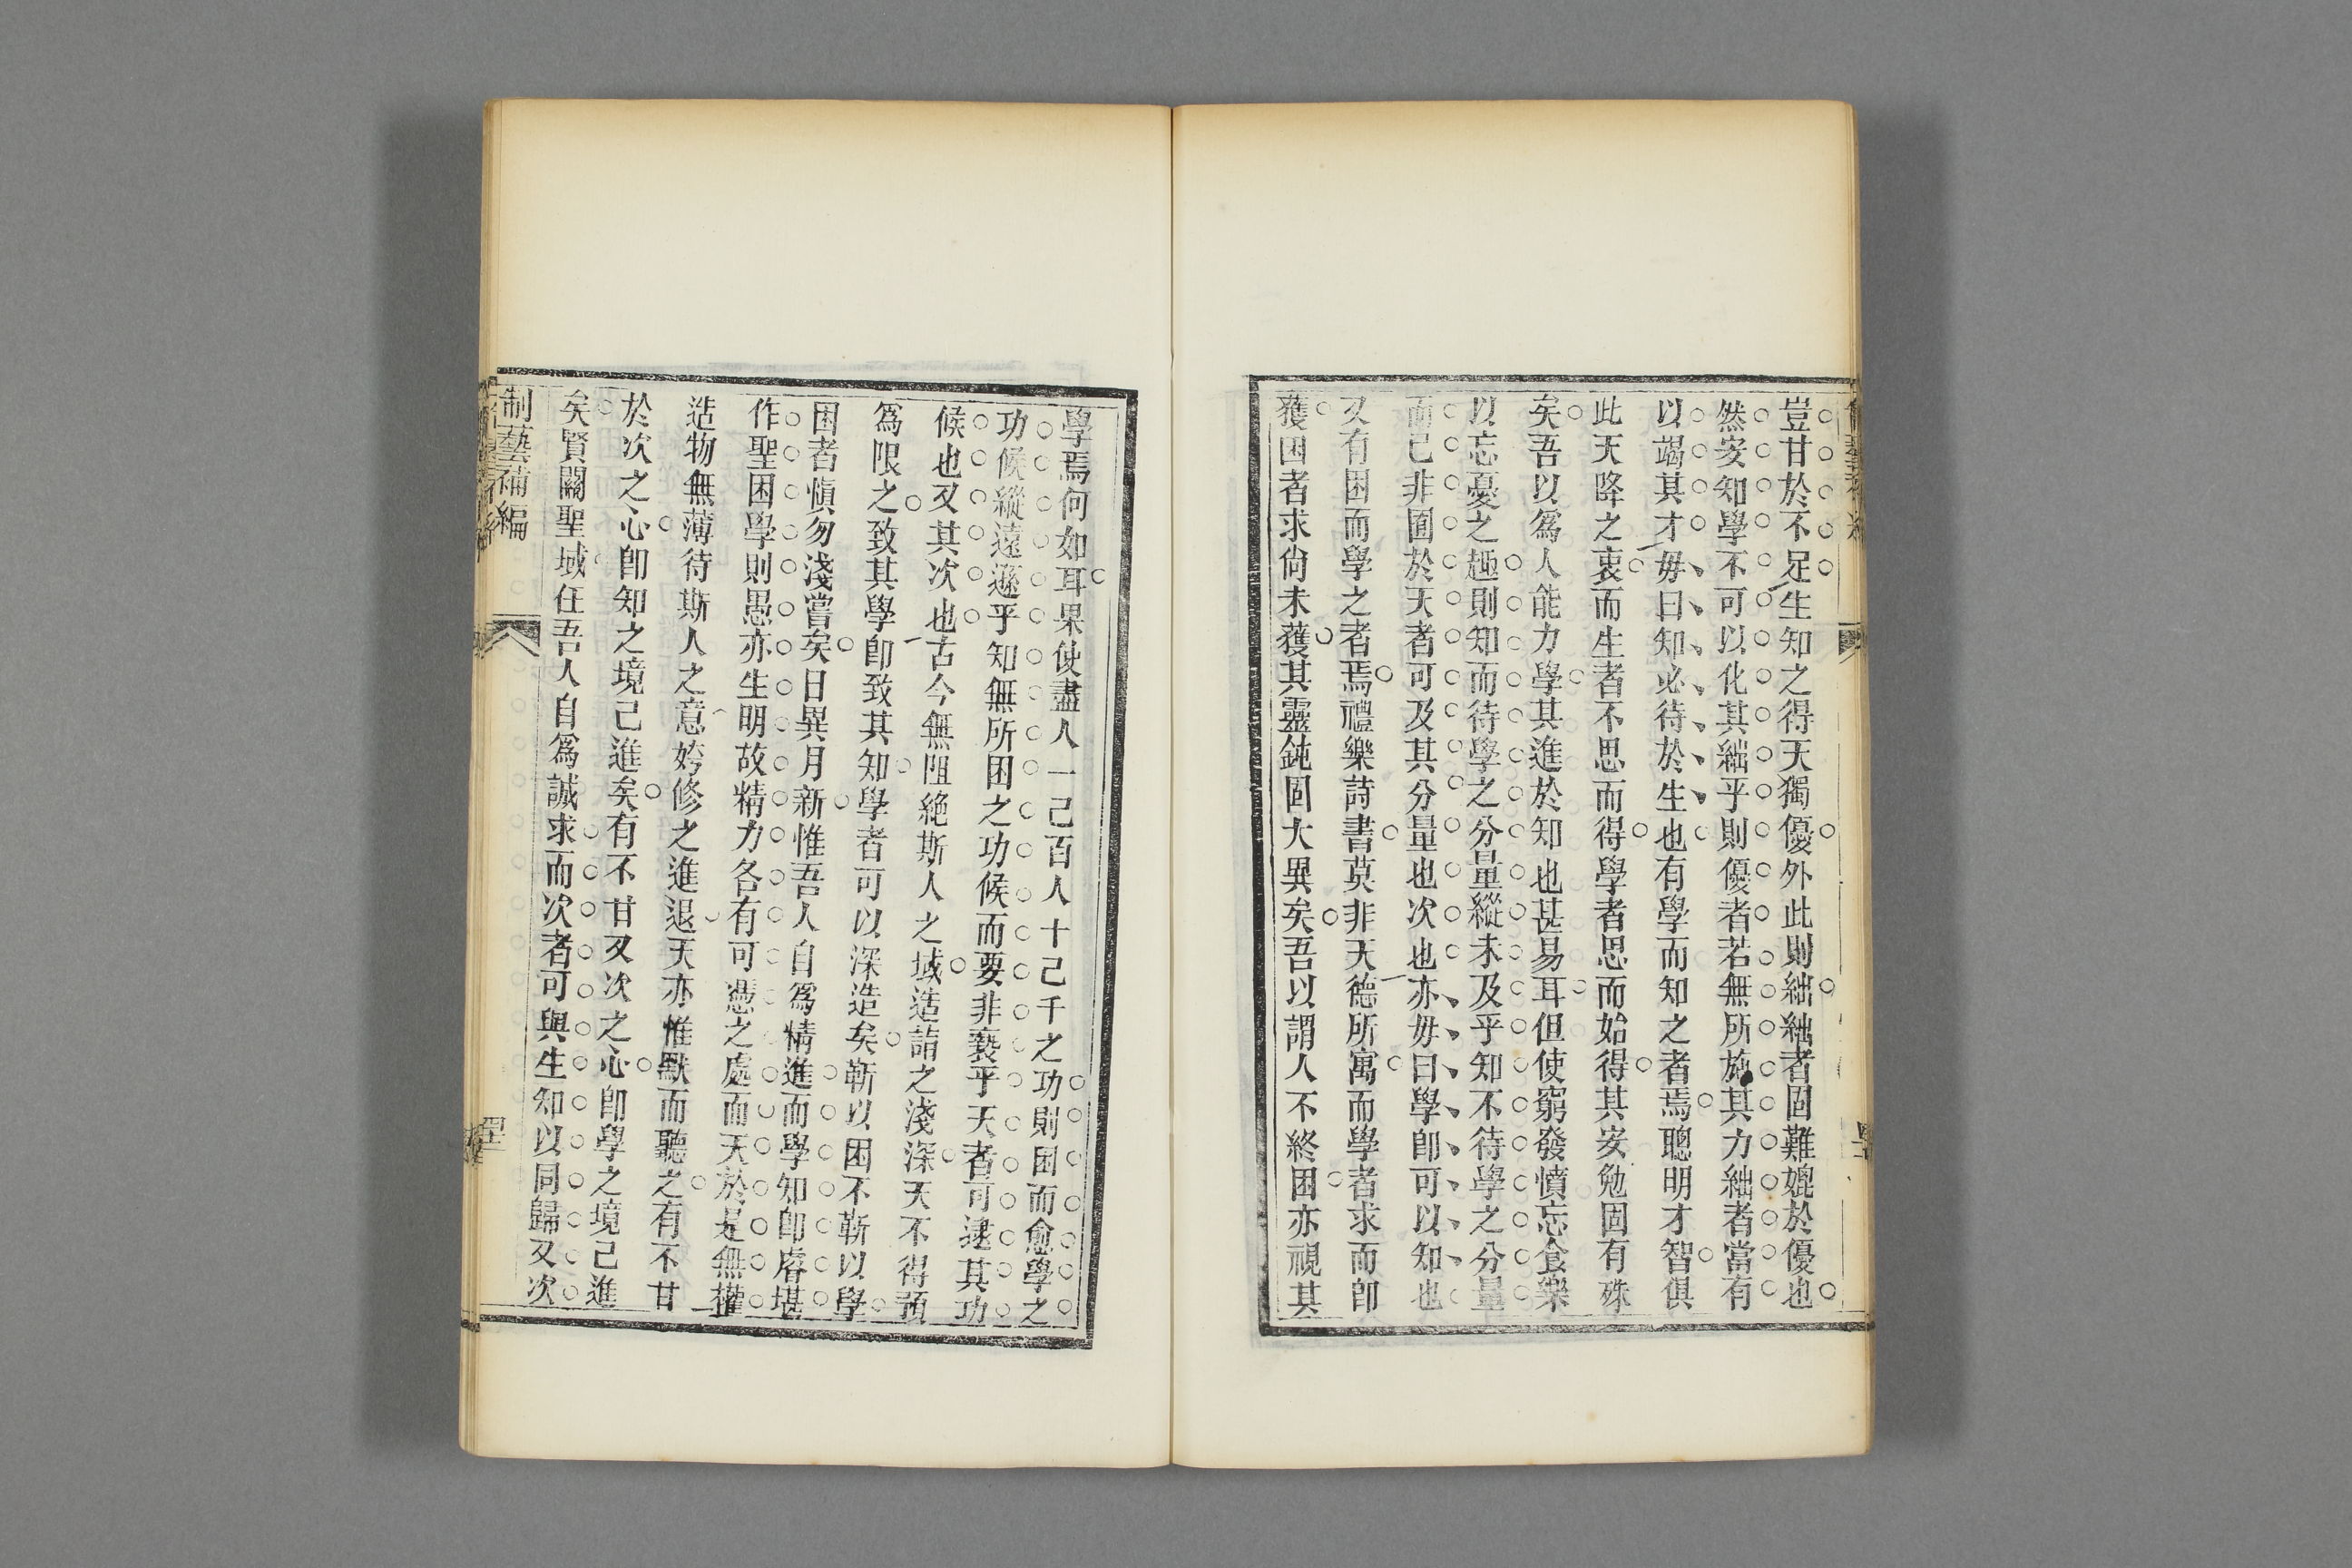 豈甘於不足生知之得天獨優外此則絀絀者固難媲於優也
然安知學不可以化其絀乎則優者若無所施其力絀者當有
以竭其才毋曰知必待於生也有學而知之者焉聰明才智俱
此天降之衷而生者不思而得學者思而始得其安勉固有殊
矣吾以爲人能力學其進於知也甚易耳但使窮發憤忘食樂
以忘憂之趣則知而待學之分量縱未及乎知不待學之分量
而已非囿於天者可及其分量也次也亦毋曰學卽可以知也
又有困而學之者焉禮樂詩書莫非天德所寓而學者求而卽
獲困者求尙未獲其靈鈍固大異矣吾以謂人不終困亦視其
學焉何如耳果使盡人一己百人十己千之功則困而愈學之
功候縱遠遜乎知無所困之功候而要非褻乎天者可逮其功
候也又其次也古今無阻絶斯人之域造詣之淺深天不得預
爲限之致其學卽致其知學者可以深造矣蘄以困不蘄以學
困者愼勿淺嘗矣日異月新惟吾人自爲情進而學知卽睿堪
作聖困學則愚亦生明故精力各有可憑之處而天於是無權
造物無薄待斯人之意姱修之進退天亦惟默而聽之有不甘
於次之心卽知之境已進矣有不甘又次之心卽學之境已進
矣賢關聖域任吾人自爲誠求而次者可與生知以同歸又次
制藝補編